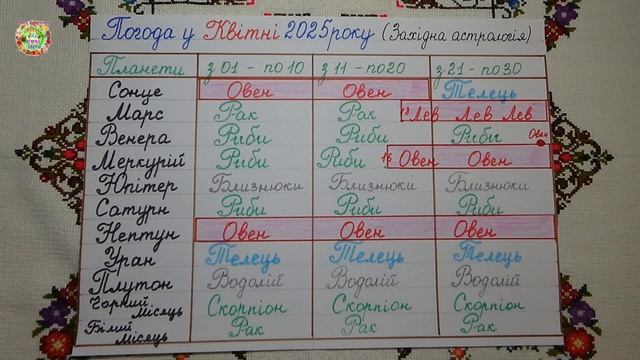 Погода у Квітні 2025 року (Західна астрологія)
Планети з 01 - по 10 з 11 - по 20 з 21 - по 30
Сонце Овен Овен Телець
Марс Рак Рак 18 Лев Лев Лев
Венера Риби Риби Риби Овен
Меркурій Риби Риби 16 Овен Овен
Юпітер Близнюки Близнюки Близнюки
Сатурн Риби Риби Риби
Нептун Овен Овен Овен
Уран Телець Телець Телець
Плутон Водолій Водолій Водолій
Чорний Місяць Скорпіон Скорпіон Скорпіон
Білий Місяць Рак Рак Рак